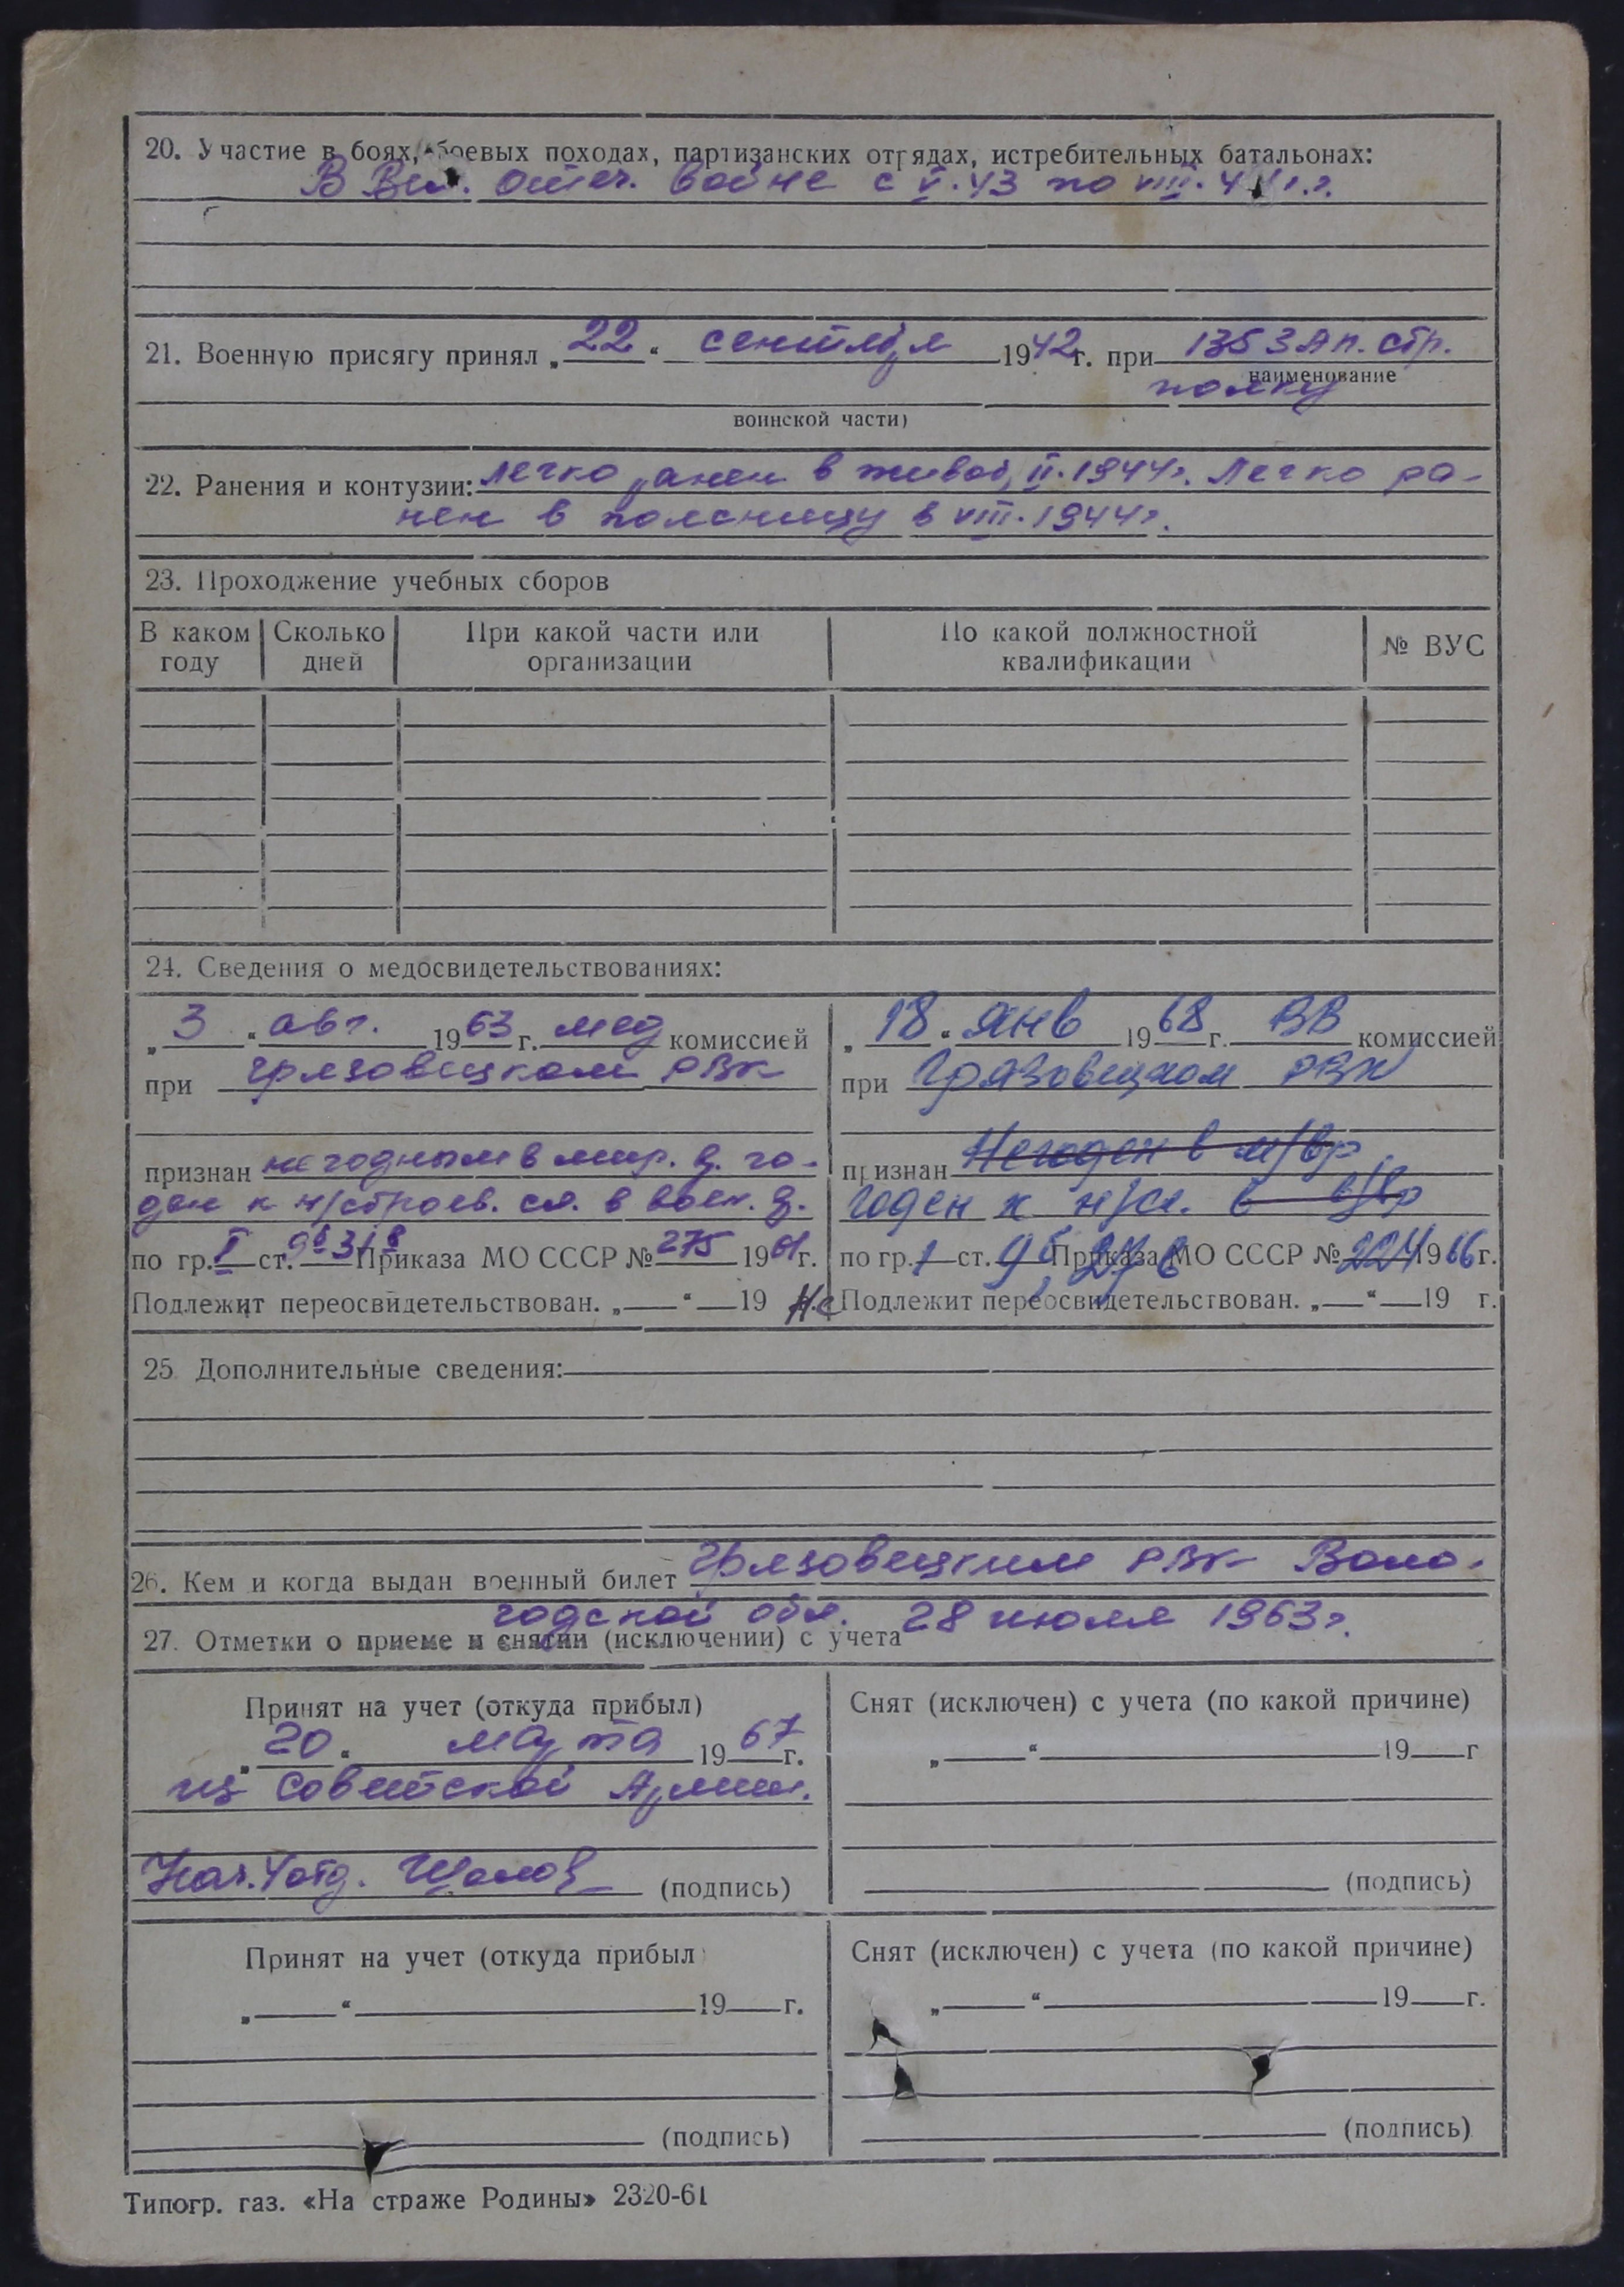 20. Участие в боях, боевых походах, партизанских отрядах, истребительных батальонах:
В Вел. Отеч. войне с V.43 по VIII.44 г.г.
21. Военную присягу принял „22“ сентября 1942 г. при 1353 Ап. стр.
наименование
полку
воинской части)
22. Ранения и контузии: легко ранен в живот, II.1944г. Легко ра-
нен в поясницу в VIII.1944г.
23. Проходжение учебных сборов
В каком году Сколько дней При какой части или организации По какой должностной квалификации № ВУС
24. Сведения о медосвидетельствованиях:
„3“ авг. 1963 г. мед комиссией
при Грязовецком РВК
признан негодным в мир. в. го-
ден к н/строев. сл. в воен. в.
по гр. I ст. 9б 31в Приказа МО СССР № 275 1961 г.
Подлежит переосвидетельствован. „ “ 19
„18“ янв 1968 г. ВВ комиссией
при Грязовецком РВК
признан Негоден в м/вр
годен к н/сл. в в/вр
по гр. 1 ст. 9б, 27в Приказа МО СССР № 224 1966 г.
Не Подлежит переосвидетельствован. „ “ 19 г.
25. Дополнительные сведения:
26. Кем и когда выдан военный билет Грязовецким РВК Воло-
годской обл. 28 июля 1963г.
27. Отметки о приеме и снятии (исключении) с учета
Принят на учет (откуда прибыл)
„20“ марта 1967 г.
из Советской Армии.
Нач. 4 отд. (подпись)
Снят (исключен) с учета (по какой причине)
„ “ 19 г
(подпись)
Принят на учет (откуда прибыл)
„ “ 19 г.
(подпись)
Снят (исключен) с учета (по какой причине)
„ “ 19 г.
(подпись)
Типогр. газ. «На страже Родины» 2320-61